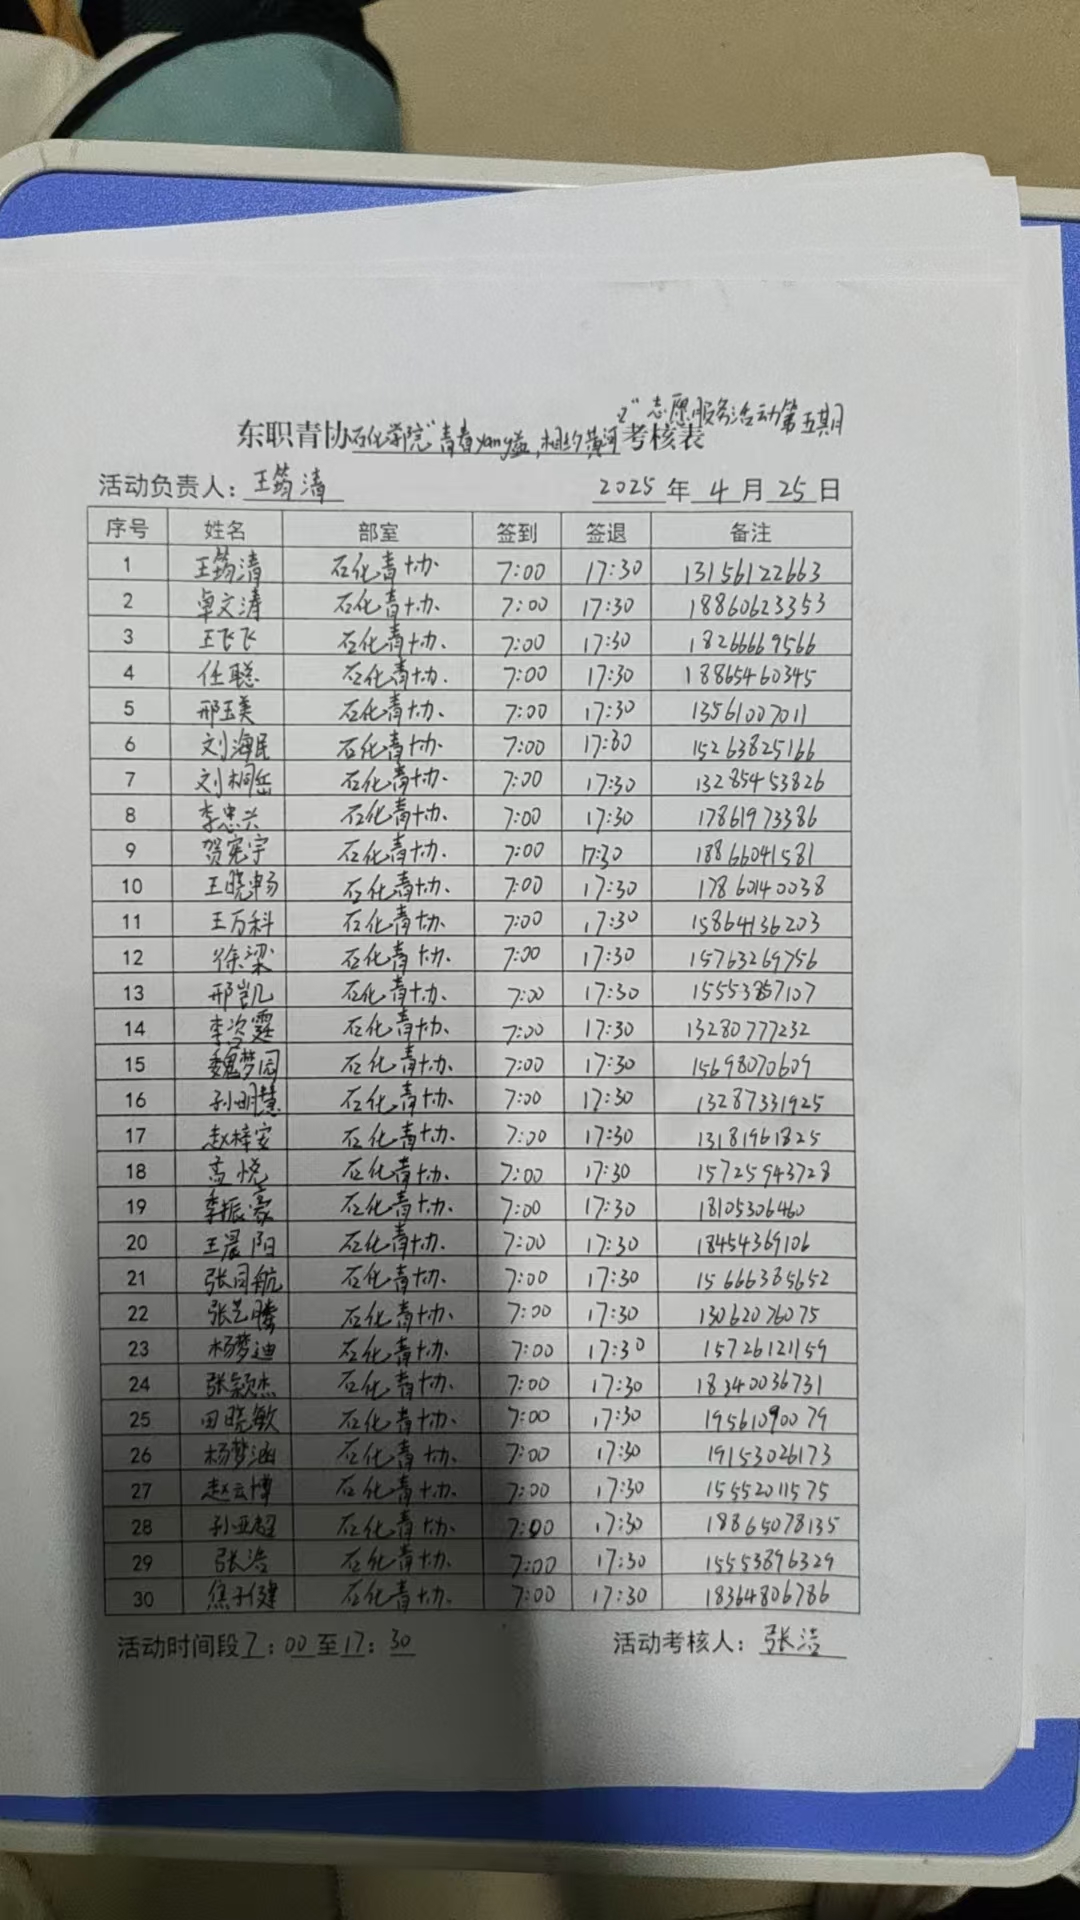 口"志愿服务活动第五期
东职青协石化学院"青春yang益,相约黄河考核表
活动负责人:王筠清 2025年4月25日
序号 姓名 部室 签到 签退 备注
1 王筠清 石化青协. 7:00 17:30 13156122663
2 卓文涛 石化青协. 7:00 17:30 18860623353
3 王飞飞 石化青协. 7:00 17:30 18266669566
4 任聪 石化青协. 7:00 17:30 18865460345
5 邢玉美 石化青协. 7:00 17:30 13561007011
6 刘海民 石化青协. 7:00 17:30 15263825166
7 刘桐岳 石化青协. 7:00 17:30 13285453826
8 李忠兴 石化青协. 7:00 17:30 17861973386
9 贺宪宇 石化青协. 7:00 17:30 18866041581
10 王晓畅 石化青协. 7:00 17:30 17860140038
11 王万科 石化青协. 7:00 17:30 15864136203
12 徐梁 石化青协. 7:00 17:30 15763269756
13 邢凯 石化青协. 7:00 17:30 15553857107
14 石化青协. 7:00 17:30 13280777232
15 魏梦园 石化青协. 7:00 17:30 15698070609
16 孙明慧 石化青协. 7:00 17:30 13287331925
17 赵梓安 石化青协. 7:00 17:30 13181961825
18 孟悦 石化青协. 7:00 17:30 15725943728
19 季振豪 石化青协. 7:00 17:30 18105306460
20 王晨阳 石化青协. 7:00 17:30 18454369106
21 张同航 石化青协. 7:00 17:30 15666385652
22 张艺腾 石化青协. 7:00 17:30 13062076075
23 杨梦迪 石化青协. 7:00 17:30 15726121159
24 张颖杰 石化青协. 7:00 17:30 18340036731
25 田晓敏 石化青协. 7:00 17:30 19561090079
26 杨梦涵 石化青协. 7:00 17:30 19153026173
27 赵云博 石化青协. 7:00 17:30 15552011575
28 孙亚超 石化青协. 7:00 17:30 18865078135
29 张浩 石化青协. 7:00 17:30 15553896329
30 焦子健 石化青协. 7:00 17:30 18364806786
活动时间段7:00至17:30 活动考核人:张浩